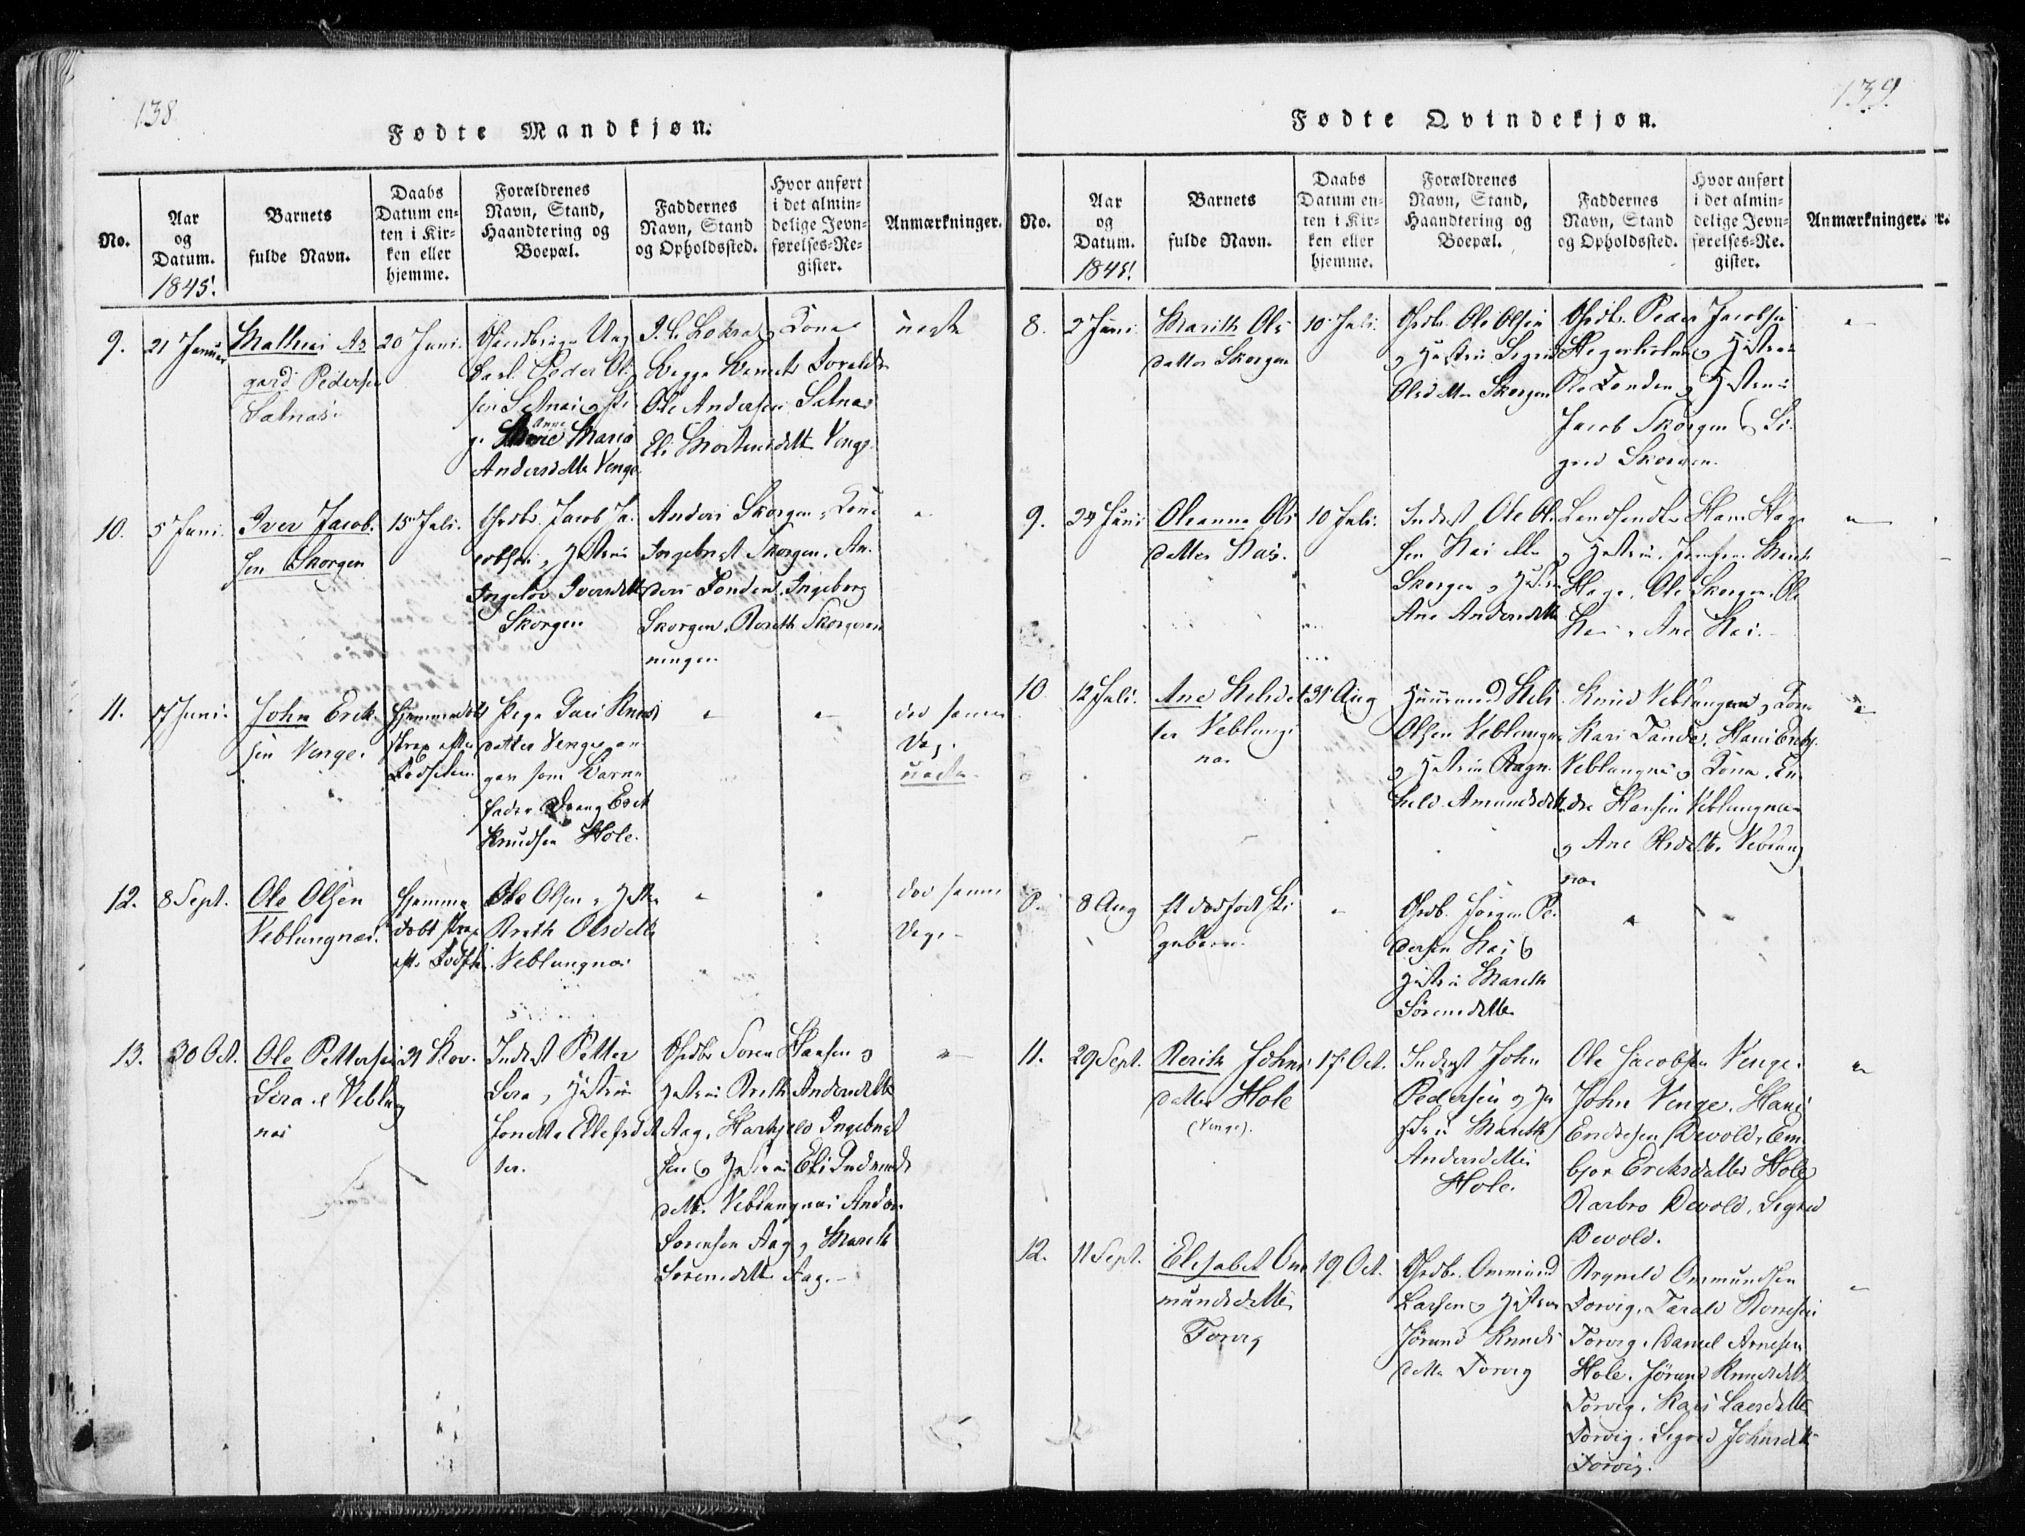 138
Fødte Mandkjøn.
No.
Aar
og
Datum.
1845.
Barnets
fulde Navn.
Daabs
Datum en-
ten i Kir-
ken eller
hjemme.
Forældrenes
Navn, Stand,
Haandtering og
Boepæl.
Faddernes
Navn, Stand
og Opholdssted.
Hvor anført
i det almin-
delige Jevn-
førelses-Re-
gister.
Anmærkninger.
9.
21 Januar
Mathias As
gard Pedersen
Sætnæs.
20 Juni.
Peder Ol-
sen Setnæs
Anne
Maria
Andersdatter Venge
Ole Andersen Sætnæs
Eli Mortensdatt Venge.
uægte
10.
5 Juni.
Iver Jacob-
sen Skorgen
15 Juli.
Grdbr. Jacob Ja-
cobsen, Hustru
Ingeborg Iversdatt
Skorgen
Anders Skorgen, Kone
Ingebrigt Skorgen, An-
ders Tonden, Ingeborg
Skorgen, Bereth Skorgeren-
ningen
"
11.
17 Juni.
John Erik-
sen Venge.
Hjemmedøbt
strax efter
Fødselen.
Pige Kari Knuds
datter Venge an-
gav som Barne
fader Dreng Erik
Knudsen Hole.
"
"
død samme
Dag.
uægte.
12.
8 Sept.
Ole Olsen
Veblungnæs.
Hjemme
døbt strax
eft. Fødsele.
Ole Olsen, Hustru
Brith Olsdatter
Veblungnæs
"
"
død samme
Dage
13.
30 Oct.
Ole Pettersen
Sira Veblung
næs
21 Nov.
Inderst Petter
Sira, Hustru
Jonetta Ellefsdat
ter.
Grdbr Søren Hansen og
Hustru Brith Andersdatter
Aag, Ingebrigt
sen og Hustru Eli
datter Veblungnæs Anders
Sørensen Aag, Mareth
Sørensdatter Aag.
"
139.
Fødte Qvindekjøn.
No.
Aar
og
Datum.
1845.
Barnets
fulde Navn.
Daabs
Datum en-
ten i Kir-
ken eller
hjemme.
Forældrenes
Navn, Stand,
Haandtering og
Boepæl.
Faddernes
Navn, Stand
og Opholdssted.
Hvor anført
i det almin-
delige Jevn-
førelses-Re-
gister.
Anmærkninger.
r.
8.
2 Juni.
Marith Ols
datter Skorgen
10 Juli.
Grdbr. Ole Olsen
og Hustru Sigrid
Olsdatter Skorgen
Grdbr. Peder Jacobsen
Hegerholm, Hustru
Ole Tonden, Hustru
Jacob Skorgen, Si-
grid Skorgen.
"
9.
24 Juni
Oleanna Ols
datter Næs.
10 Juli.
Inderst Ole Ol-
sen Næs eller
Skorgen, Hustru
Ane Andersdatter
Hans Hage
og Hustru, Marith
Hage, Ole Skorgen, Ole
Næs, Ane Næs.
"
10
12 Juli.
Ane Nelsdat
ter Veblungs
næs
31 Aug
Huusmand Nels
Olsen Veblungnæs
og Hustru Ragn-
hild Amundsdatt
Knud Veblungnæs, Kone
Kari Tande, Hans
Veblungnæs, Kone, En-
dre Hansen Veblungnæs
og Ane Veblung
næs
"
8 Aug
Et dødfødt Pi
gebarn.
"
Grdb. Jørgen Pe-
dersen Næs og
Hustru Mareth
Sørensdatter
"
"
11.
29 Sept.
Berith Johns
datter Hole
(Venge).
17 Oct.
Inderst John
Pedersen og Hu
stru Mareth
Andersdatter
Hole.
Ole Jacobsen Venge.
John Venge, Hans
Endresen Devold, Em-
bjør Eriksdatter Hole
Barbro Devold, Sigrid
Devold.
"
12.
11 Sept.
Elisabet Om
mundsdatter
Torvig
19 Oct.
Grdbr. Ommund
Larsen og Hustru
Jørand Knuds
datter Torvig
Brynild Ommundsen
Torvig, Tarald Arnesen
Torvig, Daniel Arnesen
Hole, Jørand Knudsdatt
Torvig, Kari Larsdatter
Torvig, Sigrid Johnsdatt
Torvig.
"